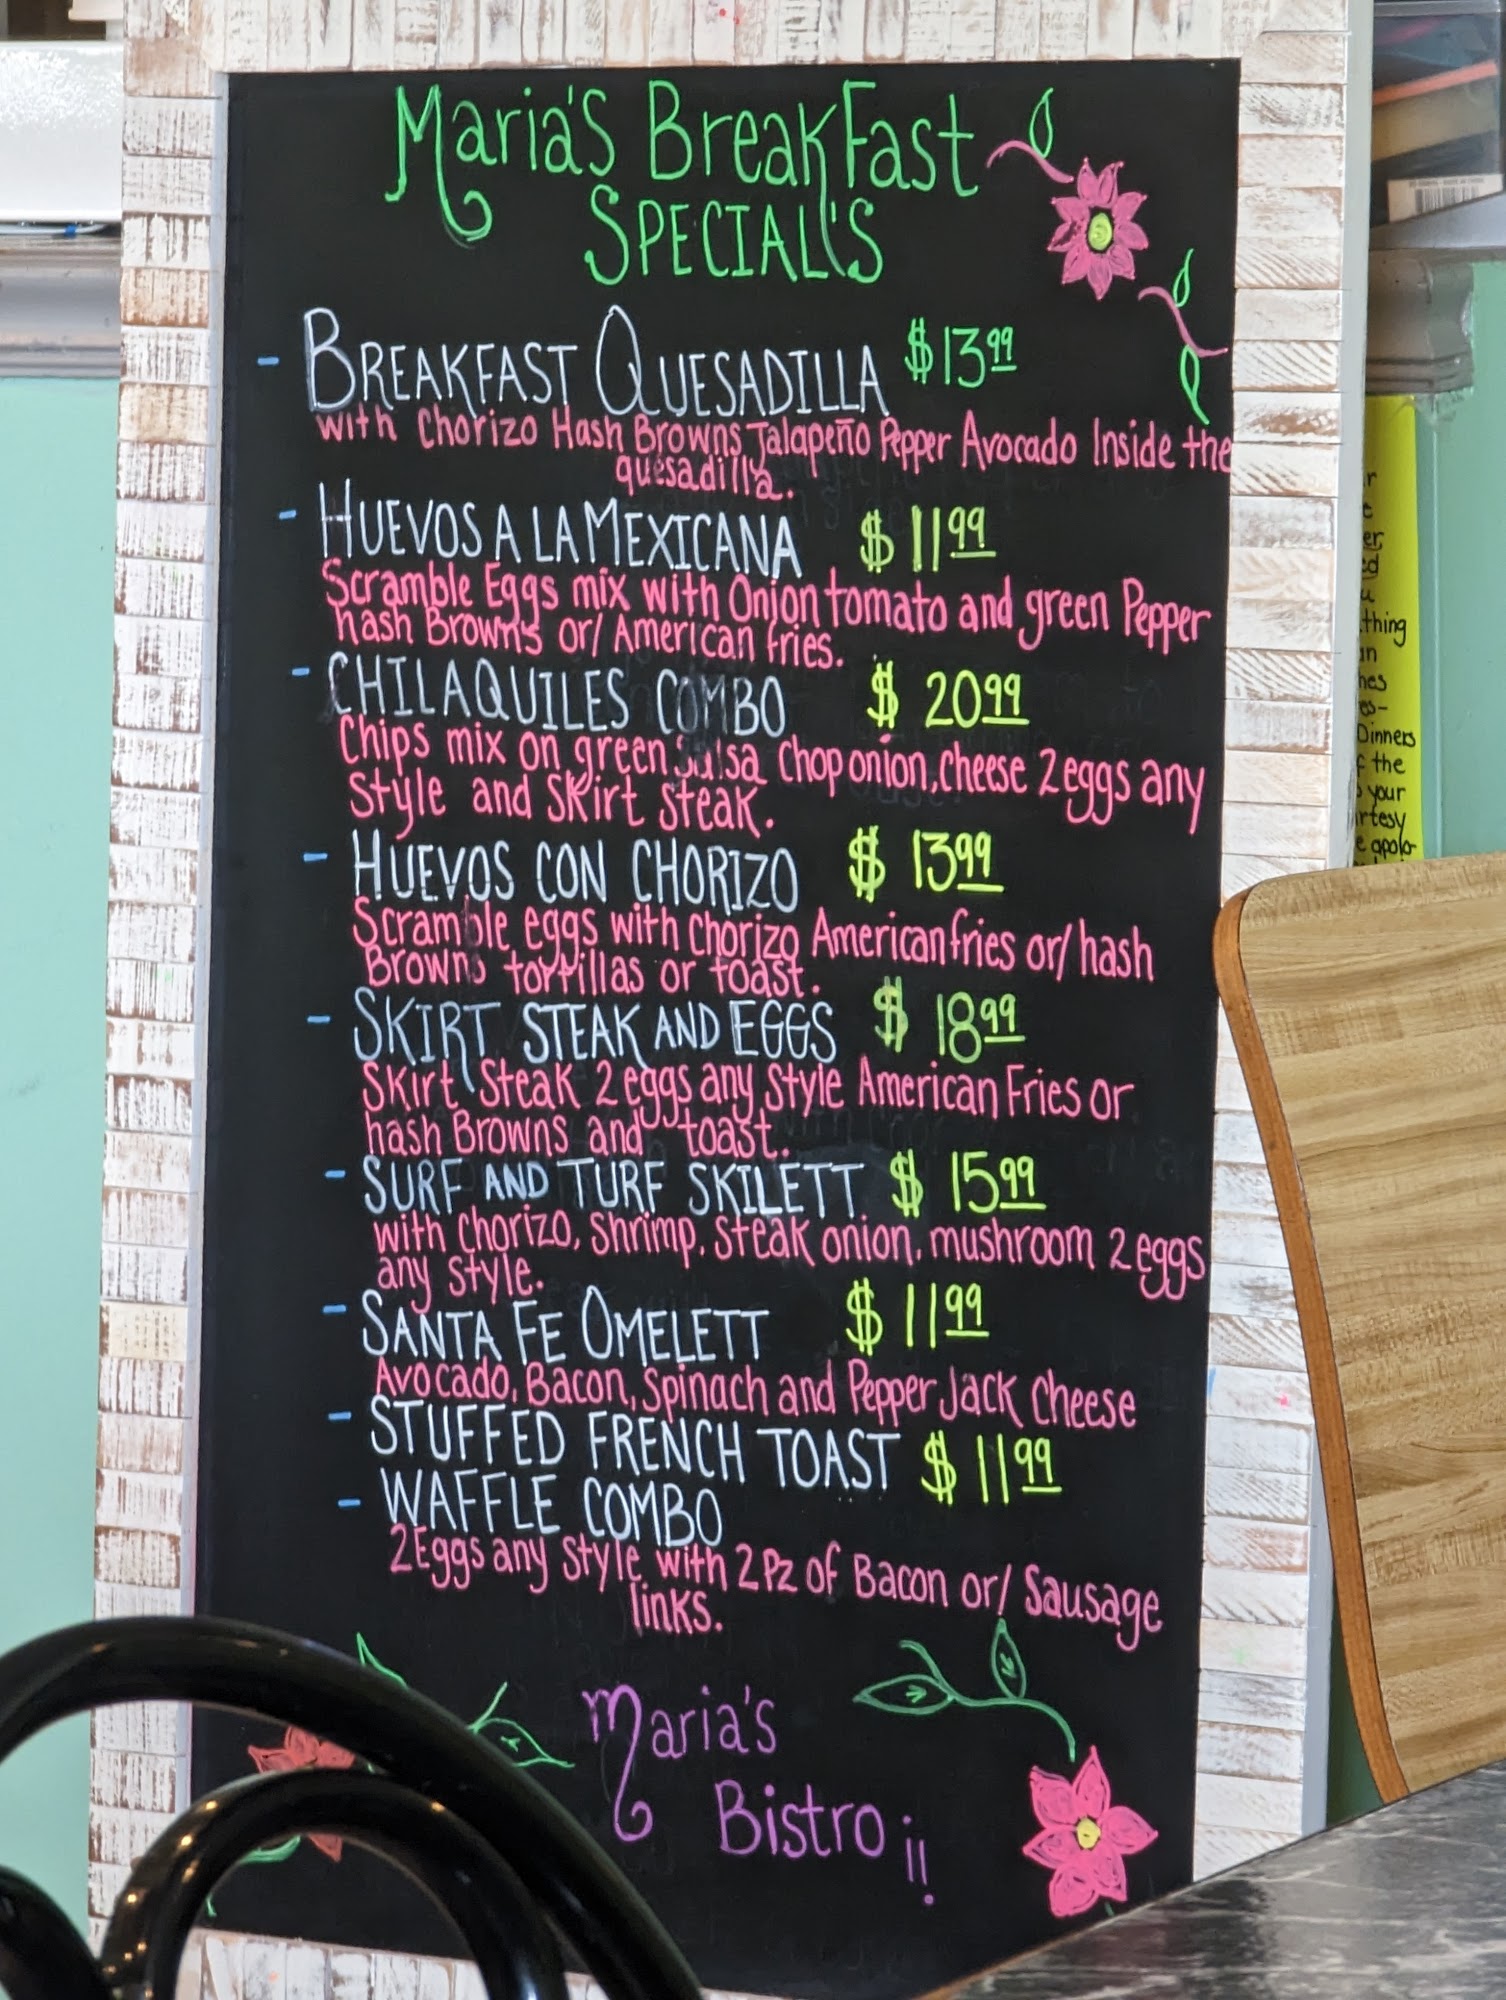 Maria's BreakFast
SPECIAL'S
- BREAKFAST QUESADILLA $13.99
with Chorizo Hash Browns Jalapeño Pepper Avocado Inside the
quesadilla.
- HUEVOS A LA MEXICANA $11.99
Scramble Eggs mix with Onion tomato and green Pepper
hash Browns or/ American fries.
- CHILAQUILES COMBO $20.99
Chips mix on green salsa chop onion, cheese 2 eggs any
Style and Skirt steak.
- HUEVOS CON CHORIZO $13.99
Scramble eggs with chorizo American fries or/ hash
Browns tortillas or toast.
- SKIRT STEAK AND EGGS $18.99
Skirt Steak 2 eggs any style American Fries or
hash Browns and toast.
- SURF AND TURF SKILETT $15.99
with chorizo, shrimp, steak onion, mushroom 2 eggs
any style.
- SANTA FE OMELETT $11.99
Avocado, Bacon, Spinach and Pepper Jack cheese
- STUFFED FRENCH TOAST $11.99
- WAFFLE COMBO
2 Eggs any style with 2 Pz of Bacon or/ Sausage
links.
Maria's
Bistro ¡¡
thing
Dinners
the
your